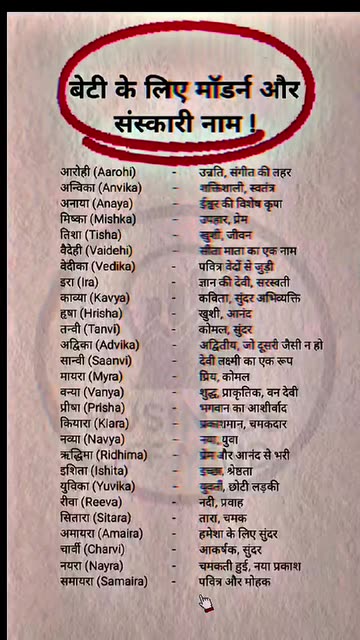 बेटी के लिए मॉडर्न और
संस्कारी नाम !
आरोही (Aarohi) - उन्नति, संगीत की लहर
अन्विका (Anvika) - शक्तिशाली, स्वतंत्र
अनाया (Anaya) - ईश्वर की विशेष कृपा
मिष्का (Mishka) - उपहार, प्रेम
तिशा (Tisha) - खुशी, जीवन
वैदेही (Vaidehi) - सीता माता का एक नाम
वेदीका (Vedika) - पवित्र वेदों से जुड़ी
इरा (Ira) - ज्ञान की देवी, सरस्वती
काव्या (Kavya) - कविता, सुंदर अभिव्यक्ति
हृषा (Hrisha) - खुशी, आनंद
तन्वी (Tanvi) - कोमल, सुंदर
अद्विका (Advika) - अद्वितीय, जो दूसरी जैसी न हो
सान्वी (Saanvi) - देवी लक्ष्मी का एक रूप
मायरा (Myra) - प्रिय, कोमल
वन्या (Vanya) - शुद्ध, प्राकृतिक, वन देवी
प्रीषा (Prisha) - भगवान का आशीर्वाद
कियारा (Kiara) - प्रकाशमान, चमकदार
नव्या (Navya) - नया, युवा
ऋद्धिमा (Ridhima) - प्रेम और आनंद से भरी
इशिता (Ishita) - इच्छा, श्रेष्ठता
युविका (Yuvika) - युवती, छोटी लड़की
रीवा (Reeva) - नदी, प्रवाह
सितारा (Sitara) - तारा, चमक
अमायरा (Amaira) - हमेशा के लिए सुंदर
चार्वी (Charvi) - आकर्षक, सुंदर
नयरा (Nayra) - चमकती हुई, नया प्रकाश
समायरा (Samaira) - पवित्र और मोहक